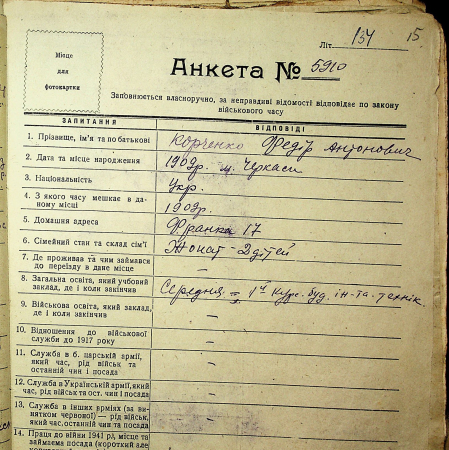 Літ. 134 15
Місце
для
фотокартки
Анкета № 5910
Заповнюється власноручно, за неправдиві відомості відповідає по закону
військового часу
ЗАПИТАННЯ ВІДПОВІДІ
1. Прізвище, ім'я та по батькові Корченко Федір Антонович
2. Дата та місце народження 1909р. м. Черкаси
3. Національність Укр.
4. З якого часу мешкає в да-
ному місці 1909р.
5. Домашня адреса Франка 17
6. Сімейний стан та склад сім'ї Жонат - 2 дітей
7. Де проживав та чим займався
до переїзду в дане місце –
8. Загальна освіта, який учбовий
заклад, де і коли закінчив Середня = 1й курс. буд. ін-та. технік.
9. Військова освіта, який заклад,
де і коли закінчив –
10. Відношення до військової
служби до 1917 року –
11. Служба в б. царській армії,
який час, рід військ та
останній чин і посада –
12. Служба в Українській армії, який
час, рід військ та ост. чин і посада –
13. Служба в інших арміях (за ви-
нятком червоної) — рід військ,
який час, останній чин та посада –
14. Праця до війни (1941 р.), місце та
займаєма посада (короткий але